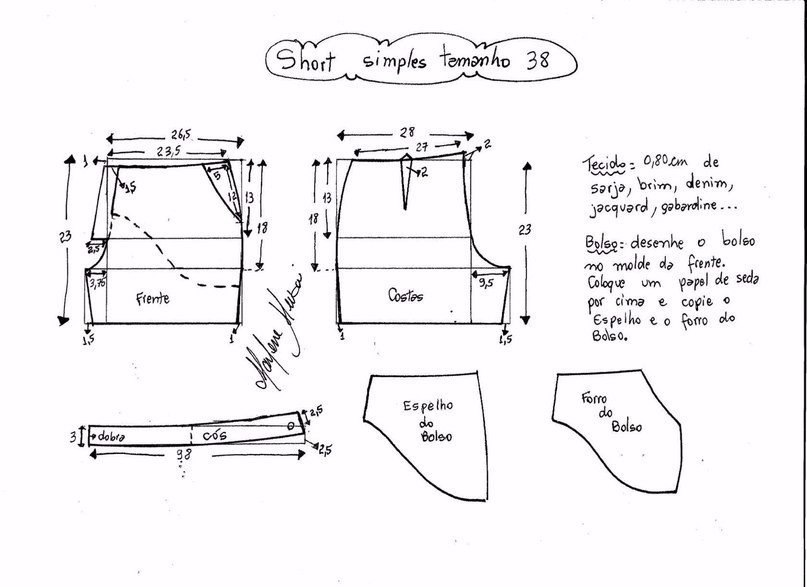 Short simples tamanho 38
26,5
23,5
1
1,5
5
12
13
18
23
3,5
3,75
Frente
1,5
1
28
27
2
2
13
18
23
9,5
Costas
1
1,5
Tecido = 0,80cm de
sarja, brim, denim,
jacquard, gabardine...
Bolso = desenhe o bolso
no molde da frente.
Coloque um papel de seda
por cima e copie o
Espelho e o forro do
Bolso.
Marlene Mukai
3
dobra
cós
2,5
2,5
98
Espelho
do
Bolso
Forro
do
Bolso